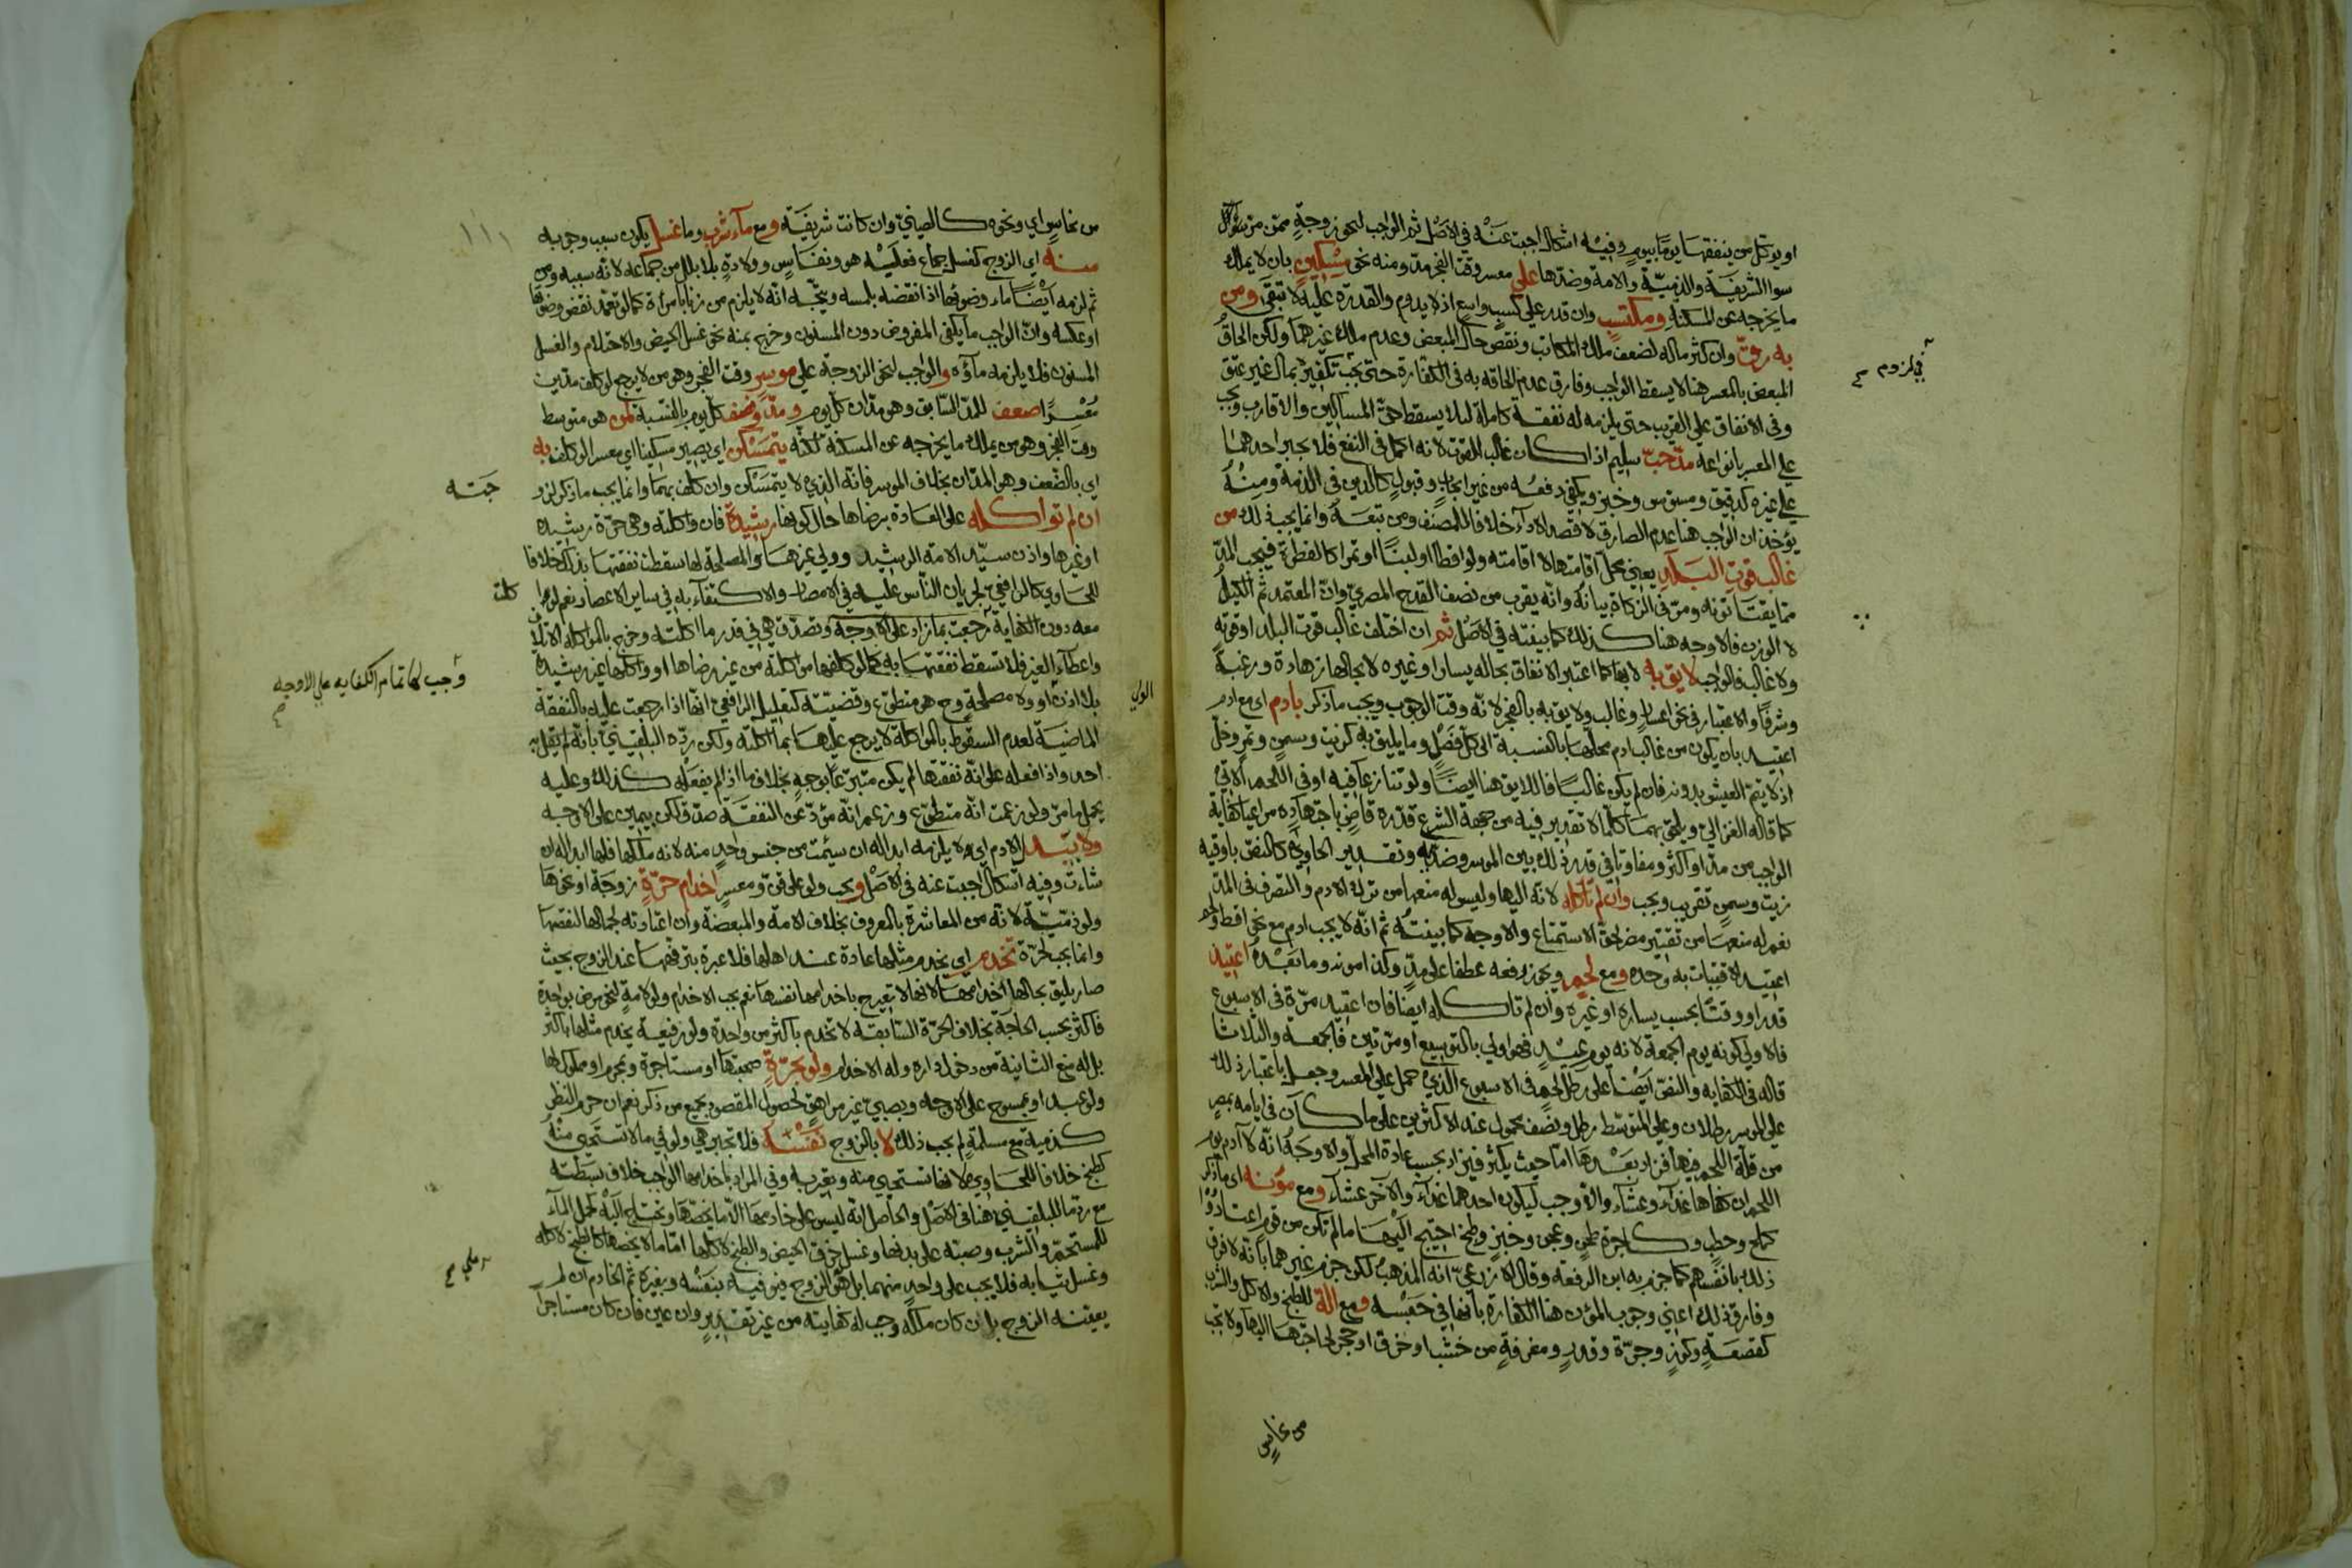 او يوكل من ينفقها يوما بيوم وفيه اشكال اجبت عنه في الاصل ثم الواجب لنحو زوجة ممن مر
سوا الشريفة والذمية والامة وضدها علي معسر وقت الفجر مد ومنه نحو مسكين بان لا يملك
ما يخرجه عن المسكنة ومكتسب وان قدر علي كسب واسع اذ لا يدوم والقدرة عليه لا تبقي ومن
به رق وان كثر ماله لضعف ملك المكاتب ونقص حال المبعض وعدم ملك غيرهما ولكن الحاق
المبعض بالمعسر هنا لا يسقط الواجب وفارق عدم الحاقه به في الكفارة حتي يجب تكفيره بمال غير عتق
وفي الانفاق علي القريب حتي يلزمه له نفقة كاملة لئلا يسقط حق المساكين والاقارب ويجب
علي المعسر بانواعه مد حب سليم اذا كان غالب القوت لانه اكمل في النفع فلا يجبر احدهما
علي غيره كدقيق ومسوس وخبز ويكفي دفعه من غير ايجاب وقبول كالدين في الذمة ومنه
يؤخذ ان الواجب هنا عدم الصارف لا قصد الاداء خلافا للمصنف ومن تبعه وانما يجب ذلك من
غالب قوت البلد يعني محل اقامتها لا اقامته ولو اقطا او لبنا او تمرا كالفطرة فيجب المد
مما يقتاتونه ومر في الزكاة بيانه وانه يقرب من نصف القدح المصري وان المعتمد ثم الكيل
لا الوزن فالاوجه هنا كذلك كما بينته في الاصل ثم ان اختلف غالب قوت البلد او قوته
ولا غالب فالواجب لايق به لا بها كما اعتبر الانفاق بحاله يسارا وغيره لا بحالها زهادة ورغبة
وشرفا والاعتبار في نحو اعسار وغالب ولايق به بالفجر لانه وقت الوجوب ويجب ما ذكر بادم اي مع ادم
اعتيد بان يكون من غالب ادم محلها بالنسبة الي كل فصل وما يليق به كزيت وسمن وتمر وخل
اذ لا يتم العيش بدونه فان لم يكن غالبا فاللايق هنا ايضا ولو تنازعا فيه او في اللحم الاتي
كما قاله الغزالي ويلحق بهما كلما لا تقدير فيه من جهة الشرع قدره قاض باجتهاده مراعيا كفاية
الواجب من مد او اكثر ومفاوتا في قدر ذلك بين الموسر وضديه وتقدير الحاوي كالنص باوقية
زيت وسمن تقريب ويجب وان لم تاكله لانه اليها وليس له منعها من ترك الادم والتصرف في المد
نعم له منعها من تقتير مضر لحق الاستمتاع والاوجه كما بينته ثم انه لا يجب ادم مع نحو اقط ولحم
اعتيد الاقتيات به وحده ومع لحم ويجوز رفعه عطفا علي مد وكذا مونه وما بعده اعتيد
قدرا ووقتا بحسب يساره او غيره وان لم تاكله ايضا فان اعتيد مرة في الاسبوع
فالاولي كونه يوم الجمعة لانه يوم عيد فهو اولي بالتوسيع او مرتين فالجمعة والثلاثا
قاله في الكفاية والنص ايضا علي رطل لحم في الاسبوع الذي حمل علي المعسر وجعل باعتبار ذلك
علي الموسر رطلان وعلي المتوسط رطل ونصف محمول عند الاكثرين علي ما كان في ايامه بمصر
من قلة اللحم فيها فزاد بعدها اما حيث يكثر فيزاد بحسب عادة المحل والاوجه انه لا ادم يوم
اللحم ان كفاها غداء وعشاء والا وجب ليكون احدهما غداء والاخر عشاء ومع مؤنه اي ما ذكر
كملح وحطب وكاجرة طحن وعجن وخبز وطبخ احتيج اليها ما لم تكن من قوم اعتادوا
ذلك بانفسهم كما جزم به ابن الرفعة وقال الاذرعي انه المذهب لكن جزم غيرهما بانه لا فرق
وفارق ذلك اعني وجوب المؤن هنا الكفارة بانها في حبسه ومع الة للطبخ والاكل والشرب
كقصعة وكوز وجرة وقدر ومغرفة من خشب او خزف او حجر لحاجتها اليها ولا يجب
من نحاس
في لزوم
١١١
من نحاس اي ونحوه كالصيني وان كانت شريفة ومع ماء شرب وما غسل يكون سبب وجوبه
منه اي الزوج كغسل جماع فعليه هو ونفاس وولادة بلا بلل من جماعه لانه سببه ومن
ثم لزمه ايضا ماء وضوئها اذا نقضه بلمسه ويتجه انه لا يلزم من زنا بامراة كما لو تعمد نقض وضوئها
او عكسه وان الواجب ما يكفي المفروض دون المسنون وخرج بمنه نحو غسل الحيض والاحتلام والغسل
المسنون فلا يلزمه ماؤه والواجب لنحو الزوجة علي موسر وقت الفجر وهو من لا يرجع لو كلف مدين
معسرا ضعف للمد السابق وهو مدان كل يوم ومد ونصف كل يوم بالنسبة لمن هو متوسط
وقت الفجر وهو من يملك ما يخرجه عن المسكنة لكنه يتمسكن اي يصير مسكينا اي معسرا لو كلف به
اي بالضعف وهو المدان بخلاف الموسر فانه الذي لا يتمسكن وان كلف بهما وانما يجب ما ذكر لزو
جته
ان لم تواكله علي العادة برضاها حال كونها رشيدة فان واكلته وهي حرة رشيدة
او غيرها واذن سيد الامة الرشيد وولي غيرها والمصلحة لها سقطت نفقتها بذلك خلافا
للحاوي كالرافعي لجريان الناس عليه في الامصار والاكتفاء به في ساير الاعصار نعم لو
اكلت
معه دون الكفاية رجعت بما زاد علي الاوجه وتصدق هي في قدر ما اكلته وخرج بالمواكلة الاتلاف
وجب لها تمام الكفايه علي الاوجه
واعطاء الغير فلا تسقط نفقتها به كما لو كلفها مواكلته من غير رضاها او واكلها غير رشيدة
بلا اذن او ولا مصلحة وح هو متطوع وقضيته كتعليل الرافعي انها اذا رجعت عليه بالنفقة
الولي
الماضية لعدم السقوط بالمواكلة لا يرجع عليها بما اكلته ولكن رده البلقيني بانه لم يقل به
احد واذا فعله علي انه نفقتها لم يكن متبرعا بوجه بخلاف ما اذا لم يفعله كذلك وعليه
يحمل ما مر ولو زعمت انه متطوع وزعم انه مؤد عن النفقة صدق لكن بيمين علي الاوجه
ولا يبدل الادم اي لا يلزمه ابداله ان سئمت من جنس واحد منه لانه ملكها فلها ابداله ان
شاءت وفيه اشكال اجبت عنه في الاصل ويجب ولو علي قن ومعسر اخدام حرة زوجة او نحوها
ولو ذمية لانه من المعاشرة بالمعروف بخلاف الامة والمبعضة وان اعتادته لجمالها لنقصها
وانما يجب لحرة تخدم اي يخدم مثلها عادة عند اهلها فلا عبرة بترفهها عند الزوج بحيث
صار يليق بحالها اخدامها لانها لا تعير ج باخدامها نفسها نعم يجب الاخدام ولو لامة لنحو مرض بواحدة
فاكثر بحسب الحاجة بخلاف الحرة السابقة لا تخدم باكثر من واحدة ولو رفيعة يخدم مثلها باكثر
بل له منع الثانية من دخول داره وله الاخدام ولو بحرة صحبتها او مستاجرة وبمحرم او مملوك لها
ولو عبدا وممسوح علي الاوجه وبصبي غير مراهق لحصول المقصود بجميع من ذكر نعم ان حرم النظر
كذمية مع مسلمة لم يجب ذلك لا بالزوج نفسه فلا تجبر هي ولو في ما لا تستحيي منه
كطبخ خلافا للحاوي لانها تستحيي منه وتعير به وفي المراد باخدامها الواجب خلاف بسطته
مع رد ما للبلقيني هنا في الاصل والحاصل انه ليس علي خادمها الا ما يخصها وتحتاج اليه كحمل الماء
للمستحم والشرب وصبه علي بدنها وغسل خرق الحيض والطبخ لاكلها اما ما لا يخصها كالطبخ لاكله
وغسل ثيابه فلا يجب علي واحد منهما بل هو علي الزوج فيوفيه بنفسه وبغيره ثم الخادم ان لم
رملي
يعينه الزوج بل ان كان ملكه وجب له كفايته من غير تقدير وان عين فان كان مستاجرا